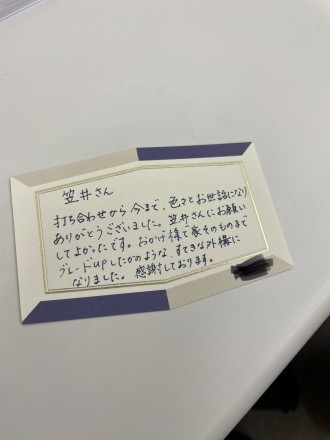 笠井さん
打ち合わせから今まで、色々とお世話になり
ありがとうございました。笠井さんにお願い
してよかったです。おかげ様で家そのものまで
グレードupしたかのような、すてきな外構に
なりました。感謝しております。